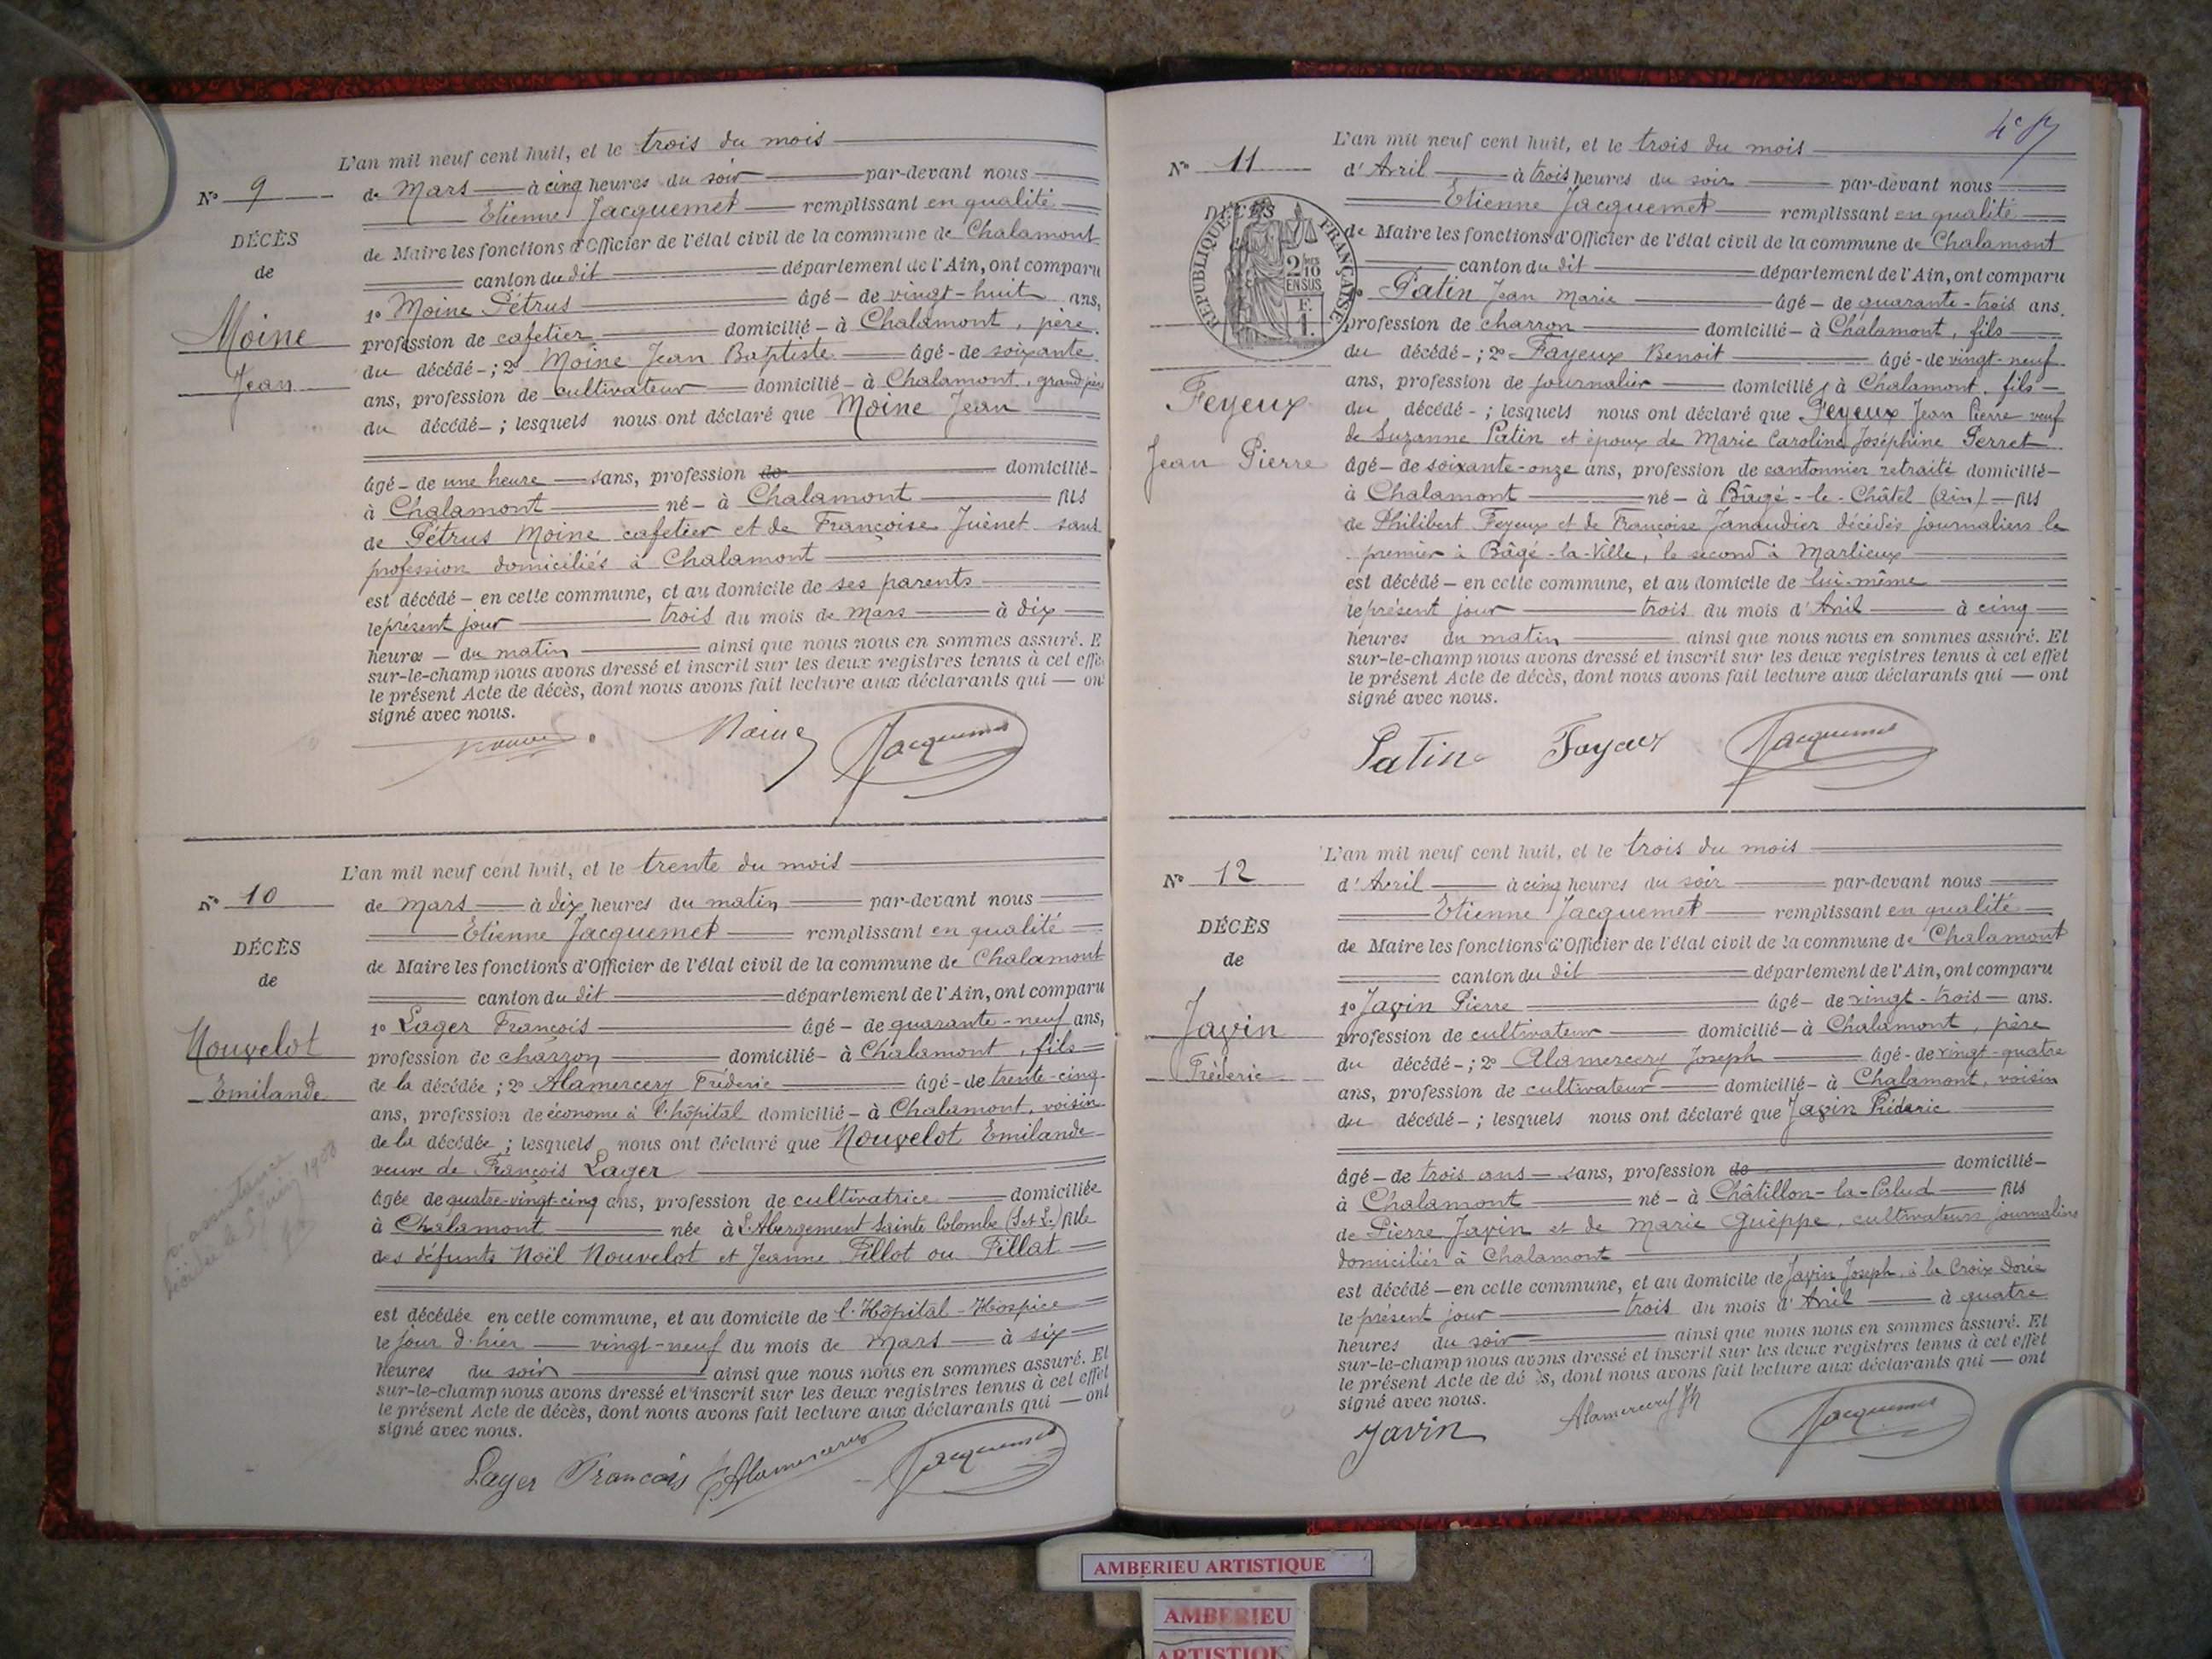 L'an mil neuf cent huit, et le trois du mois
N° 9
de Mars à cinq heures du soir par-devant nous
Etienne Jacquemet remplissant en qualité
DÉCÈS
de Maire les fonctions d'Officier de l'état civil de la commune de Chalamont
de
canton du dit département de l'Ain, ont comparu
1° Moine Pétrus âgé - de vingt-huit ans,
Moine
profession de cafetier domicilié - à Chalamont, père
du décédé - ; 2° Moine Jean Baptiste âgé - de soixante
Jean
ans, profession de cultivateur domicilié - à Chalamont, grand père
du décédé - ; lesquels nous ont déclaré que Moine Jean
âgé - de une heure sans, profession de domicilié -
à Chalamont né - à Chalamont fils
de Pétrus Moine cafetier et de Françoise Juénet sans
profession domiciliés à Chalamont
est décédé - en cette commune, et au domicile de ses parents
le présent jour trois du mois de Mars à dix
heures - du matin ainsi que nous nous en sommes assuré. E
sur-le-champ nous avons dressé et inscrit sur les deux registres tenus à cet effe
le présent Acte de décès, dont nous avons fait lecture aux déclarants qui — on
signé avec nous.
Moine Jacquemet
L'an mil neuf cent huit, et le trente du mois
N° 10
de Mars à dix heures du matin par-devant nous
Etienne Jacquemet remplissant en qualité
DÉCÈS
de Maire les fonctions d'Officier de l'état civil de la commune de Chalamont
de
canton du dit département de l'Ain, ont comparu
1° Lager François âgé - de quarante-neuf ans,
Nouvelot
profession de charron domicilié - à Chalamont, fils
de la décédée ; 2° Alamercery Fréderic âgé - de trente-cinq
Emilande
ans, profession de économe à l'hôpital domicilié - à Chalamont, voisin
de la décédée ; lesquels nous ont déclaré que Nouvelot Emilande
veuve de François Lager
âgée de quatre-vingt-cinq ans, profession de cultivatrice domiciliée
à Chalamont née à L'Abergement Sainte Colombe (S et L.) fille
des défunts Noël Nouvelot et Jeanne Pillot ou Pillat
est décédée en cette commune, et au domicile de l'Hôpital-Hospice
le jour d'hier vingt-neuf du mois de Mars à six
heures du soir ainsi que nous nous en sommes assuré. Et
sur-le-champ nous avons dressé et inscrit sur les deux registres tenus à cet effet
le présent Acte de décès, dont nous avons fait lecture aux déclarants qui — ont
signé avec nous.
Lager François Alamercery Jacquemet
assistance
1908
L'an mil neuf cent huit, et le trois du mois
N° 11
d'Avril à trois heures du soir par-devant nous
Etienne Jacquemet remplissant en qualité
DÉCÈS
RÉPUBLIQUE FRANÇAISE
2/10 EN SUS
F.
1.
de Maire les fonctions d'Officier de l'état civil de la commune de Chalamont
canton du dit département de l'Ain, ont comparu
Patin Jean Marie âgé - de quarante-trois ans.
profession de charron domicilié - à Chalamont, fils
du décédé - ; 2° Fayeux Benoit âgé - de vingt-neuf
Feyeux
ans, profession de journalier domicilié à Chalamont, fils
du décédé - ; lesquels nous ont déclaré que Feyeux Jean Pierre veuf
de Suzanne Patin et époux de Marie Caroline Joséphine Perret
Jean Pierre
âgé - de soixante-onze ans, profession de cantonnier retraité domicilié -
à Chalamont né - à Bâgé-le-Châtel (Ain) fils
de Philibert Feyeux et de Françoise Janaudier décédés journaliers le
premier à Bâgé-la-Ville, le second à Marlieux
est décédé - en cette commune, et au domicile de lui-même
le présent jour trois du mois d'Avril à cinq
heures du matin ainsi que nous nous en sommes assuré. Et
sur-le-champ nous avons dressé et inscrit sur les deux registres tenus à cet effet
le présent Acte de décès, dont nous avons fait lecture aux déclarants qui — ont
signé avec nous.
Patin Fayeux Jacquemet
L'an mil neuf cent huit, et le trois du mois
N° 12
d'Avril à cinq heures du soir par-devant nous
Etienne Jacquemet remplissant en qualité
DÉCÈS
de Maire les fonctions d'Officier de l'état civil de la commune de Chalamont
de
canton du dit département de l'Ain, ont comparu
1° Javin Pierre âgé - de vingt-trois ans.
Javin
profession de cultivateur domicilié - à Chalamont, père
du décédé - ; 2° Alamercery Joseph âgé - de vingt-quatre
Fréderic
ans, profession de cultivateur domicilié - à Chalamont, voisin
du décédé - ; lesquels nous ont déclaré que Javin Fréderic
âgé - de trois ans sans, profession de domicilié -
à Chalamont né - à Châtillon-la-Palud fils
de Pierre Javin et de Marie Guéppe, cultivateurs journaliers
domiciliés à Chalamont
est décédé - en cette commune, et au domicile de Javin Joseph, à la Croix Dorée
le présent jour trois du mois d'Avril à quatre
heures du soir ainsi que nous nous en sommes assuré. Et
sur-le-champ nous avons dressé et inscrit sur les deux registres tenus à cet effet
le présent Acte de dé s, dont nous avons fait lecture aux déclarants qui — ont
signé avec nous.
Javin Alamercery Jh Jacquemet
AMBERIEU ARTISTIQUE
AMBERIEU
ARTISTIQUE